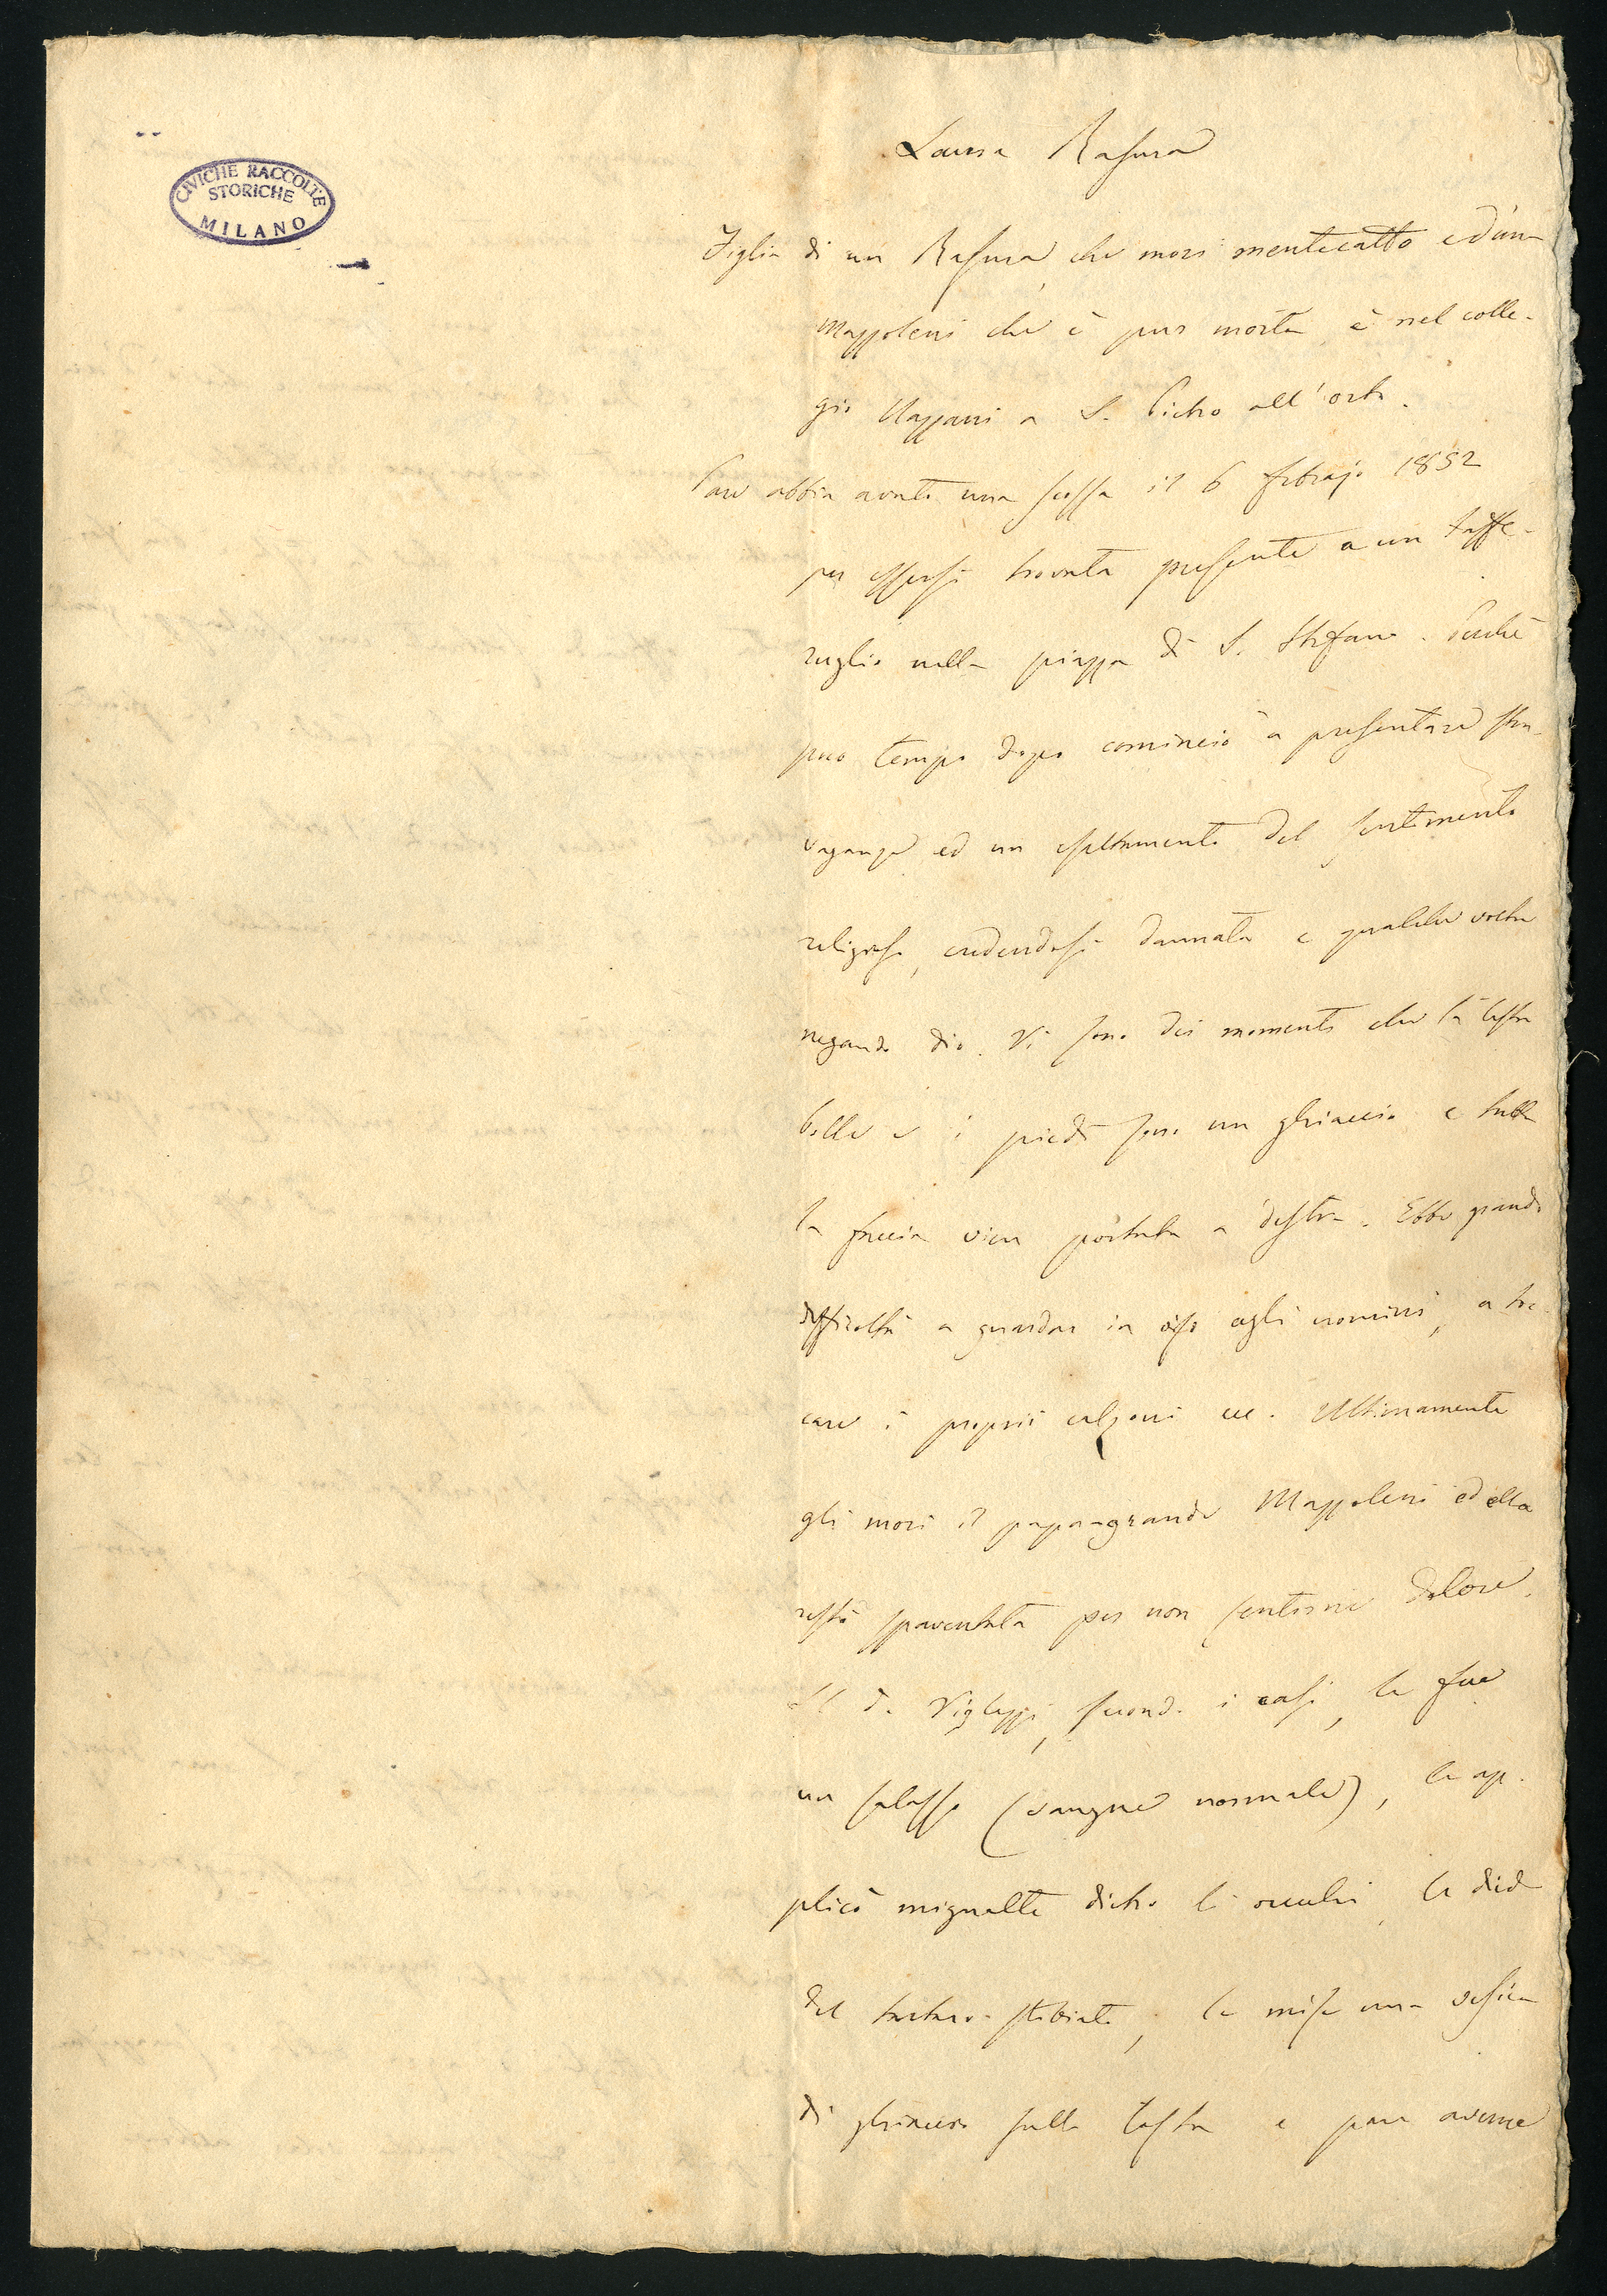 CIVICHE RACCOLTE
STORICHE
MILANO
Laura Rasura
Figlia di un Rasura, che morì mentecatto ed una
Mazzoleni che è pur morta è nel colle-
gio a S. Pietro all'orto.
Pare abbia avuto una scossa il 6 febrajo 1852
per essersi trovata presente a un taffe-
ruglio nella piazza di S. Stefano. Perchè
poco tempo dopo cominciò a presentare stra-
vaganze ed un esaltamento del sentimento
religioso, credendosi dannata e qualche volta
negando dio. Vi sono dei momenti che la testa
bolle e i piedi sono un ghiaccio e tutta
la faccia vien portata a destra. Ebbe grande
difficoltà a guardar in viso agli uomini, a toc-
care i proprii calzoni ec. Ultimamente
gli morì il papa-grande Mazzoleni ed ella
restò spaventata per non sentirne dolore.
Il d. Viglezzi, second. i casi, le fece
un salasso (sangue normale), le ap-
plicò mignatte dietro le orecchi, le diede
del tartaro-stibiato, le mise una vesica
di ghiaccio sulla testa e pare averne